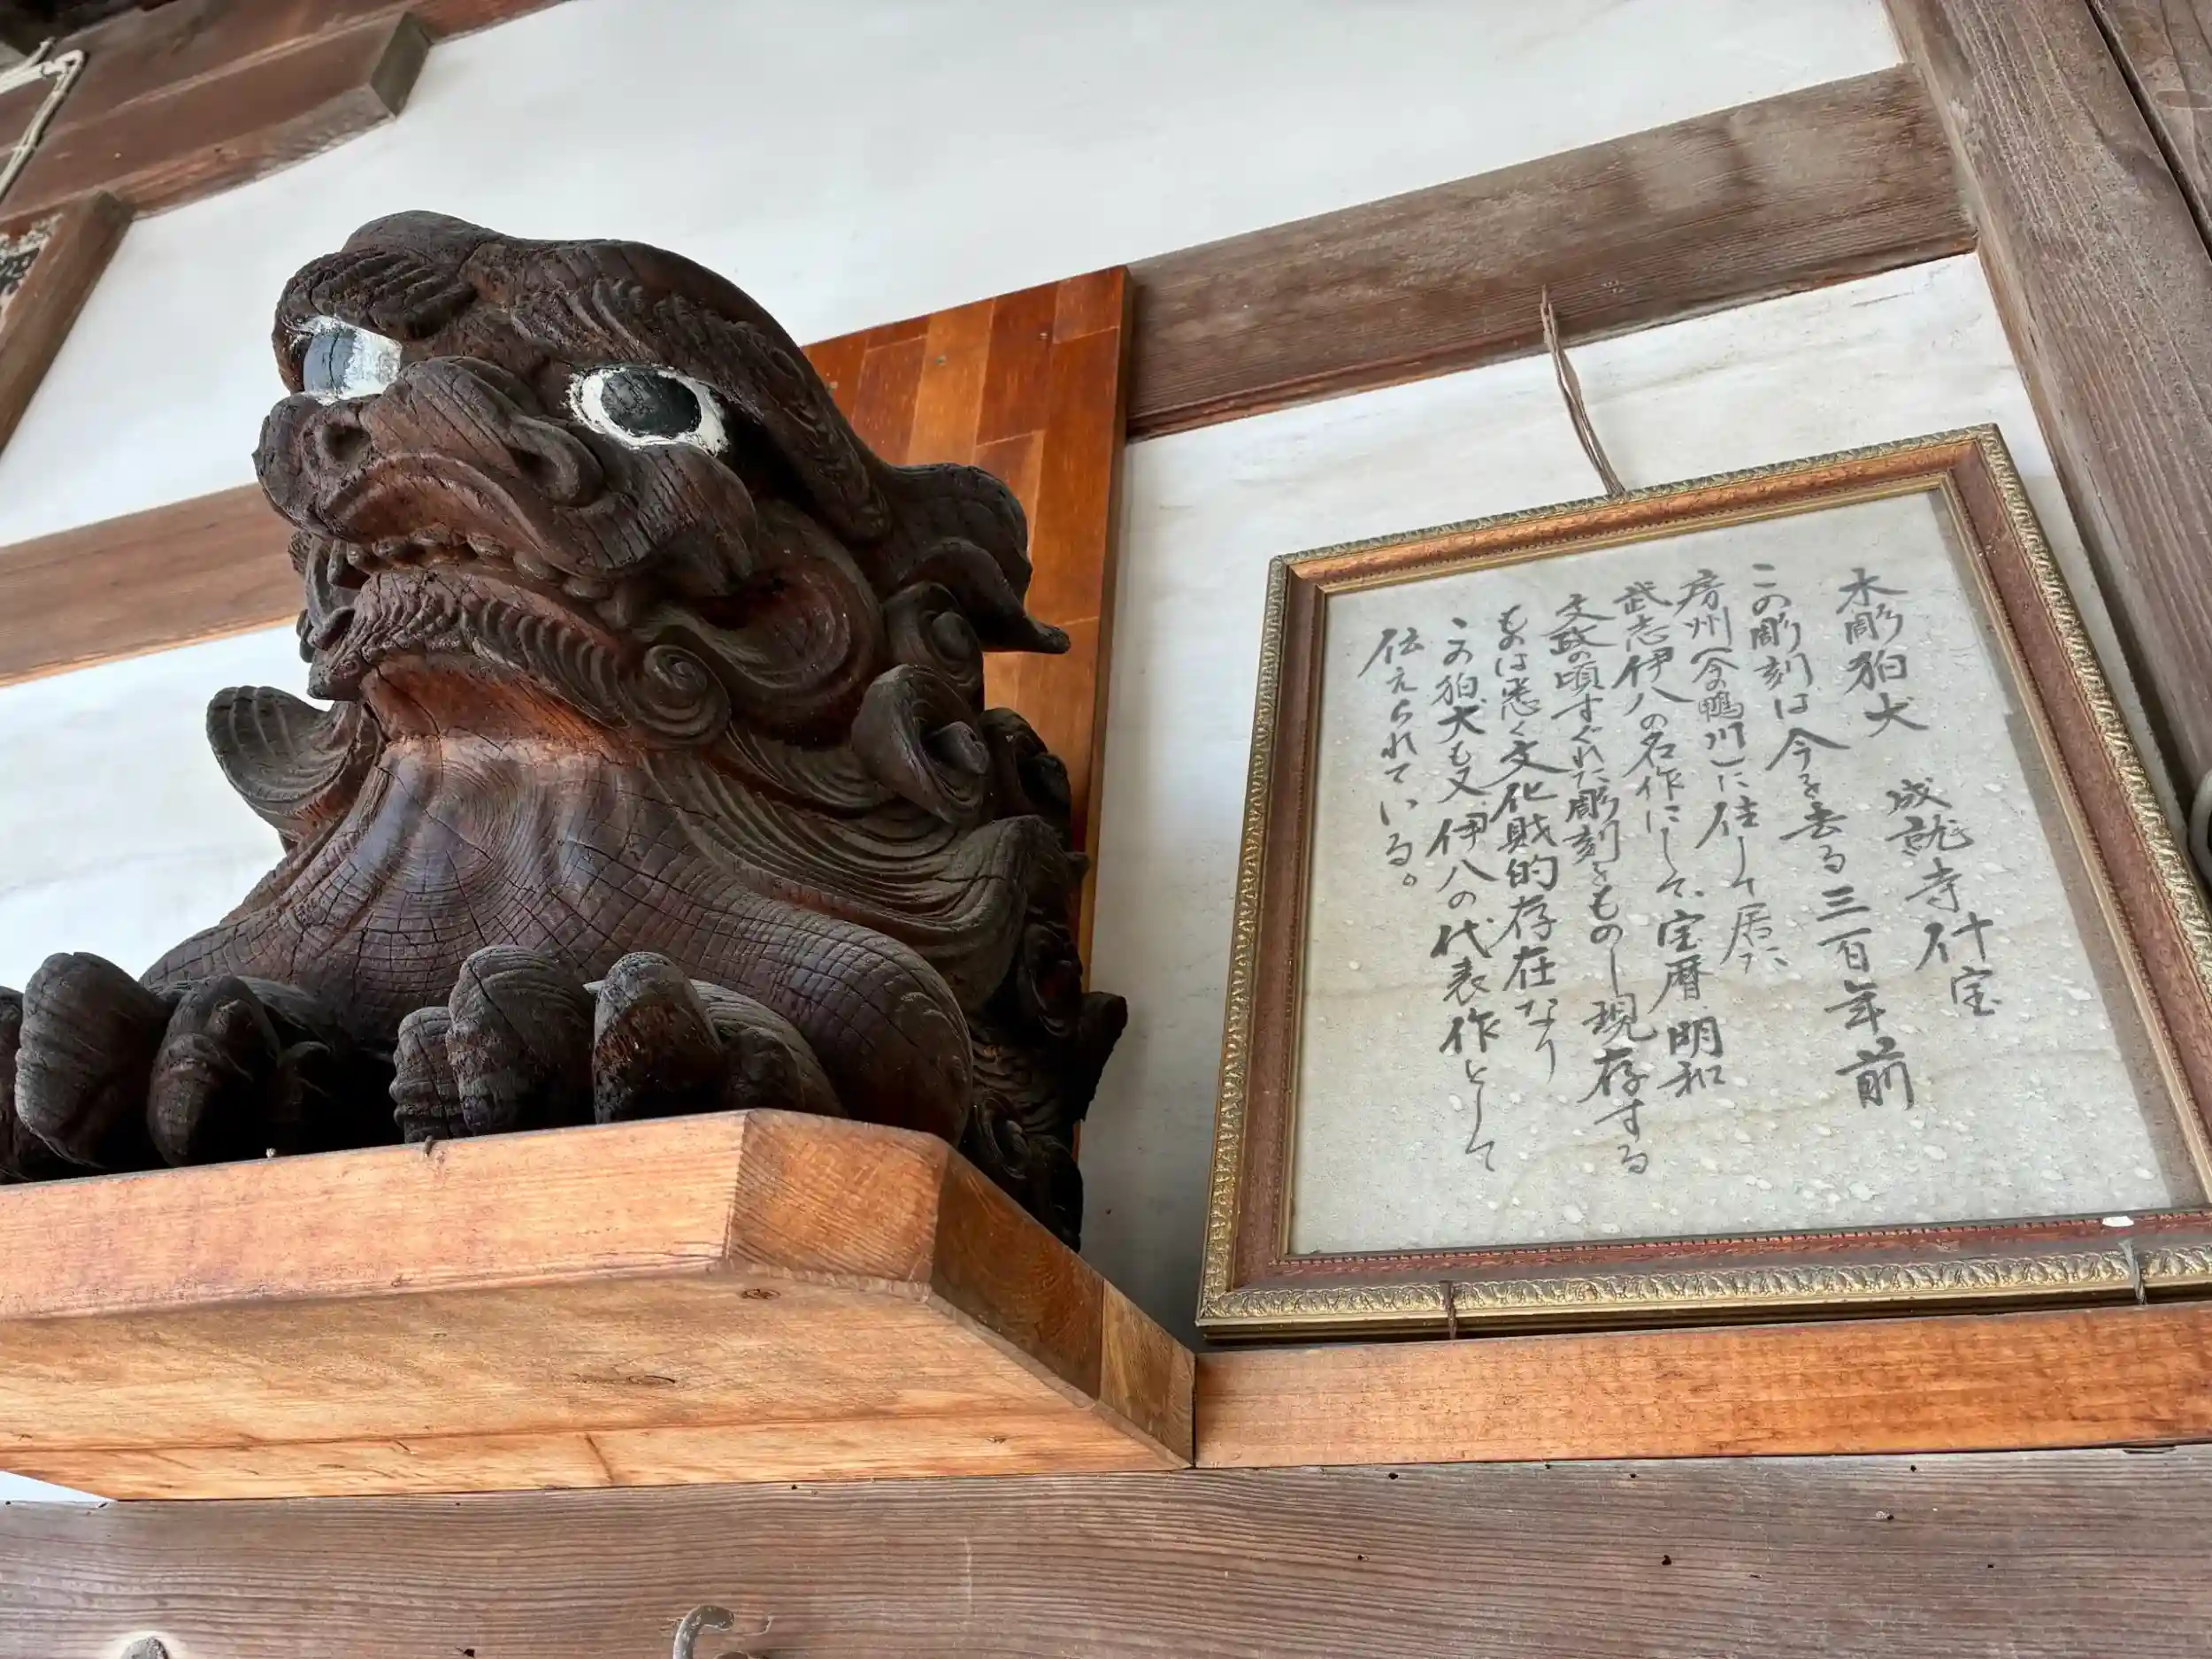 木彫狛犬　成就寺什宝
この彫刻は今を去る三百年前
房州(今の鴨川)に住して居た
武志伊八の名作にして、宝暦明和
文政の頃すぐれた彫刻をものし現存する
ものは悉く文化財的存在なり
この狛犬も又、伊八の代表作として
伝えられている。